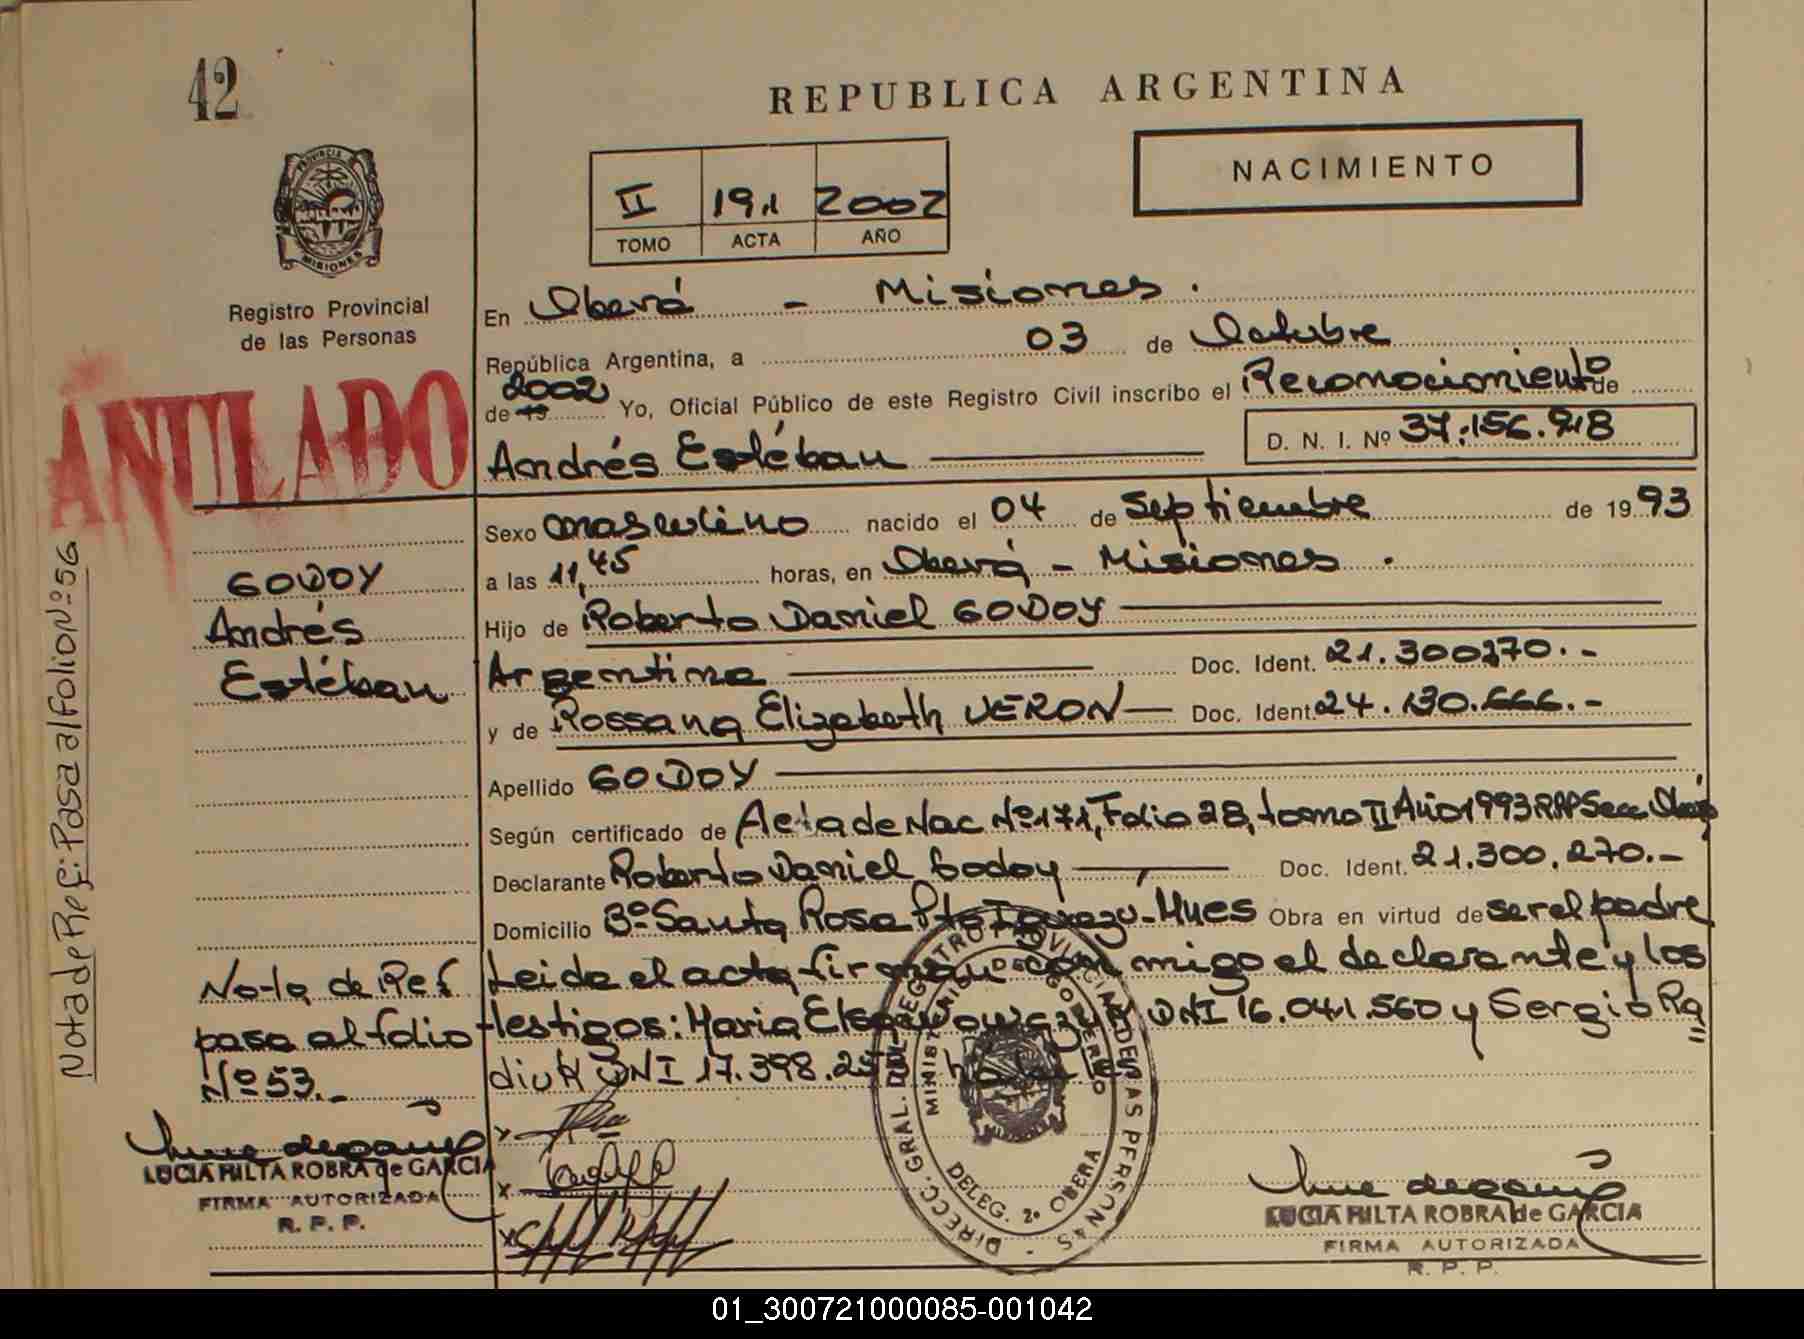 42
REPUBLICA ARGENTINA
NACIMIENTO
II 191 2002
TOMO ACTA AÑO
PROVINCIA DE
MISIONES
Registro Provincial
de las Personas
ANULADO
En Oberá - Misiones.
República Argentina, a 03 de Octubre
de 19 2002 Yo, Oficial Público de este Registro Civil inscribo el Reconocimiento de
Andrés Estéban D. N. I. Nº 37.156.918
Sexo masculino nacido el 04 de Septiembre de 1993
a las 11,45 horas, en Oberá - Misiones.
Hijo de Roberto Daniel GODOY
Argentina Doc. Ident. 21.300270.-
y de Rossana Elizabeth VERON Doc. Ident. 24.130.666.-
Apellido GODOY
Según certificado de Acta de Nac Nº 171, Folio 28, tomo II Año 1993 RPP Secc Oberá
Declarante Roberto Daniel Godoy Doc. Ident. 21.300.270.-
Domicilio Bº Santa Rosa Pto Iguazú - Mnes Obra en virtud de ser el padre
Leida el acta firman conmigo el declarante y los
testigos: Maria Elsa DNI 16.041.560 y Sergio Ra
diuk DNI 17.398.25
GODOY
Andrés
Estéban
Nota de Ref
pasa al folio
Nº 53.-
Nota de Ref: Pasa al Folio Nº 56
LUCIA HILTA ROBRA de GARCIA
FIRMA AUTORIZADA
R. P. P.
DIRECC. GRAL. DEL REGISTRO PROVINCIAL DE LAS PERSONAS
MINISTERIO DE GOBIERNO
DELEG. 2º OBERA
LUCIA HILTA ROBRA de GARCIA
FIRMA AUTORIZADA
R. P. P.
01_300721000085-001042